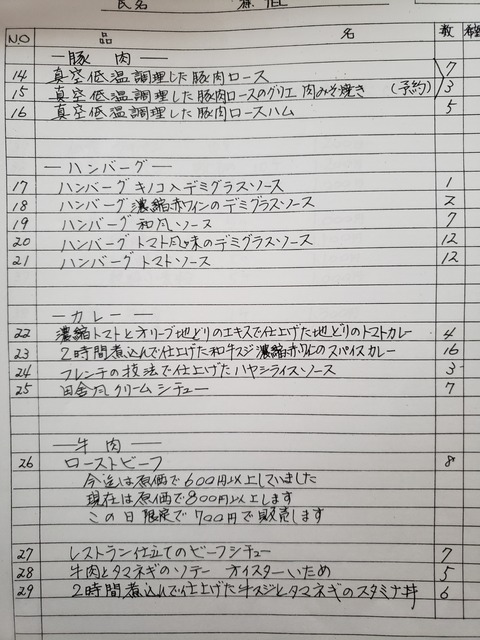 氏名
NO 品 名 数
―豚 肉―
14 真空低温調理した豚肉ロース 7
15 真空低温調理した豚肉ロースのグリエ 肉みそ焼き (予約) 3
16 真空低温調理した豚肉ロースハム 5
―ハンバーグ―
17 ハンバーグ キノコ入デミグラスソース 1
18 ハンバーグ 濃縮赤ワインのデミグラスソース 2
19 ハンバーグ 和風ソース 7
20 ハンバーグ トマト風味のデミグラスソース 12
21 ハンバーグ トマトソース 12
―カレー―
22 濃縮トマトとオリーブ地どりのエキスで仕上げた地どりのトマトカレー 4
23 2時間煮込んで仕上げた和牛スジ濃縮赤ワインのスパイスカレー 16
24 フレンチの技法で仕上げたハヤシライスソース 3
25 田舎風クリームシチュー 7
―牛 肉―
26 ローストビーフ 8
今迄は原価で600円以上していました
現在は原価で800円以上します
この日限定で700円で販売します
27 レストラン仕立てのビーフシチュー 7
28 牛肉とタマネギのソテー オイスターいため 5
29 2時間煮込んで仕上げた牛スジとタマネギのスタミナ丼 6